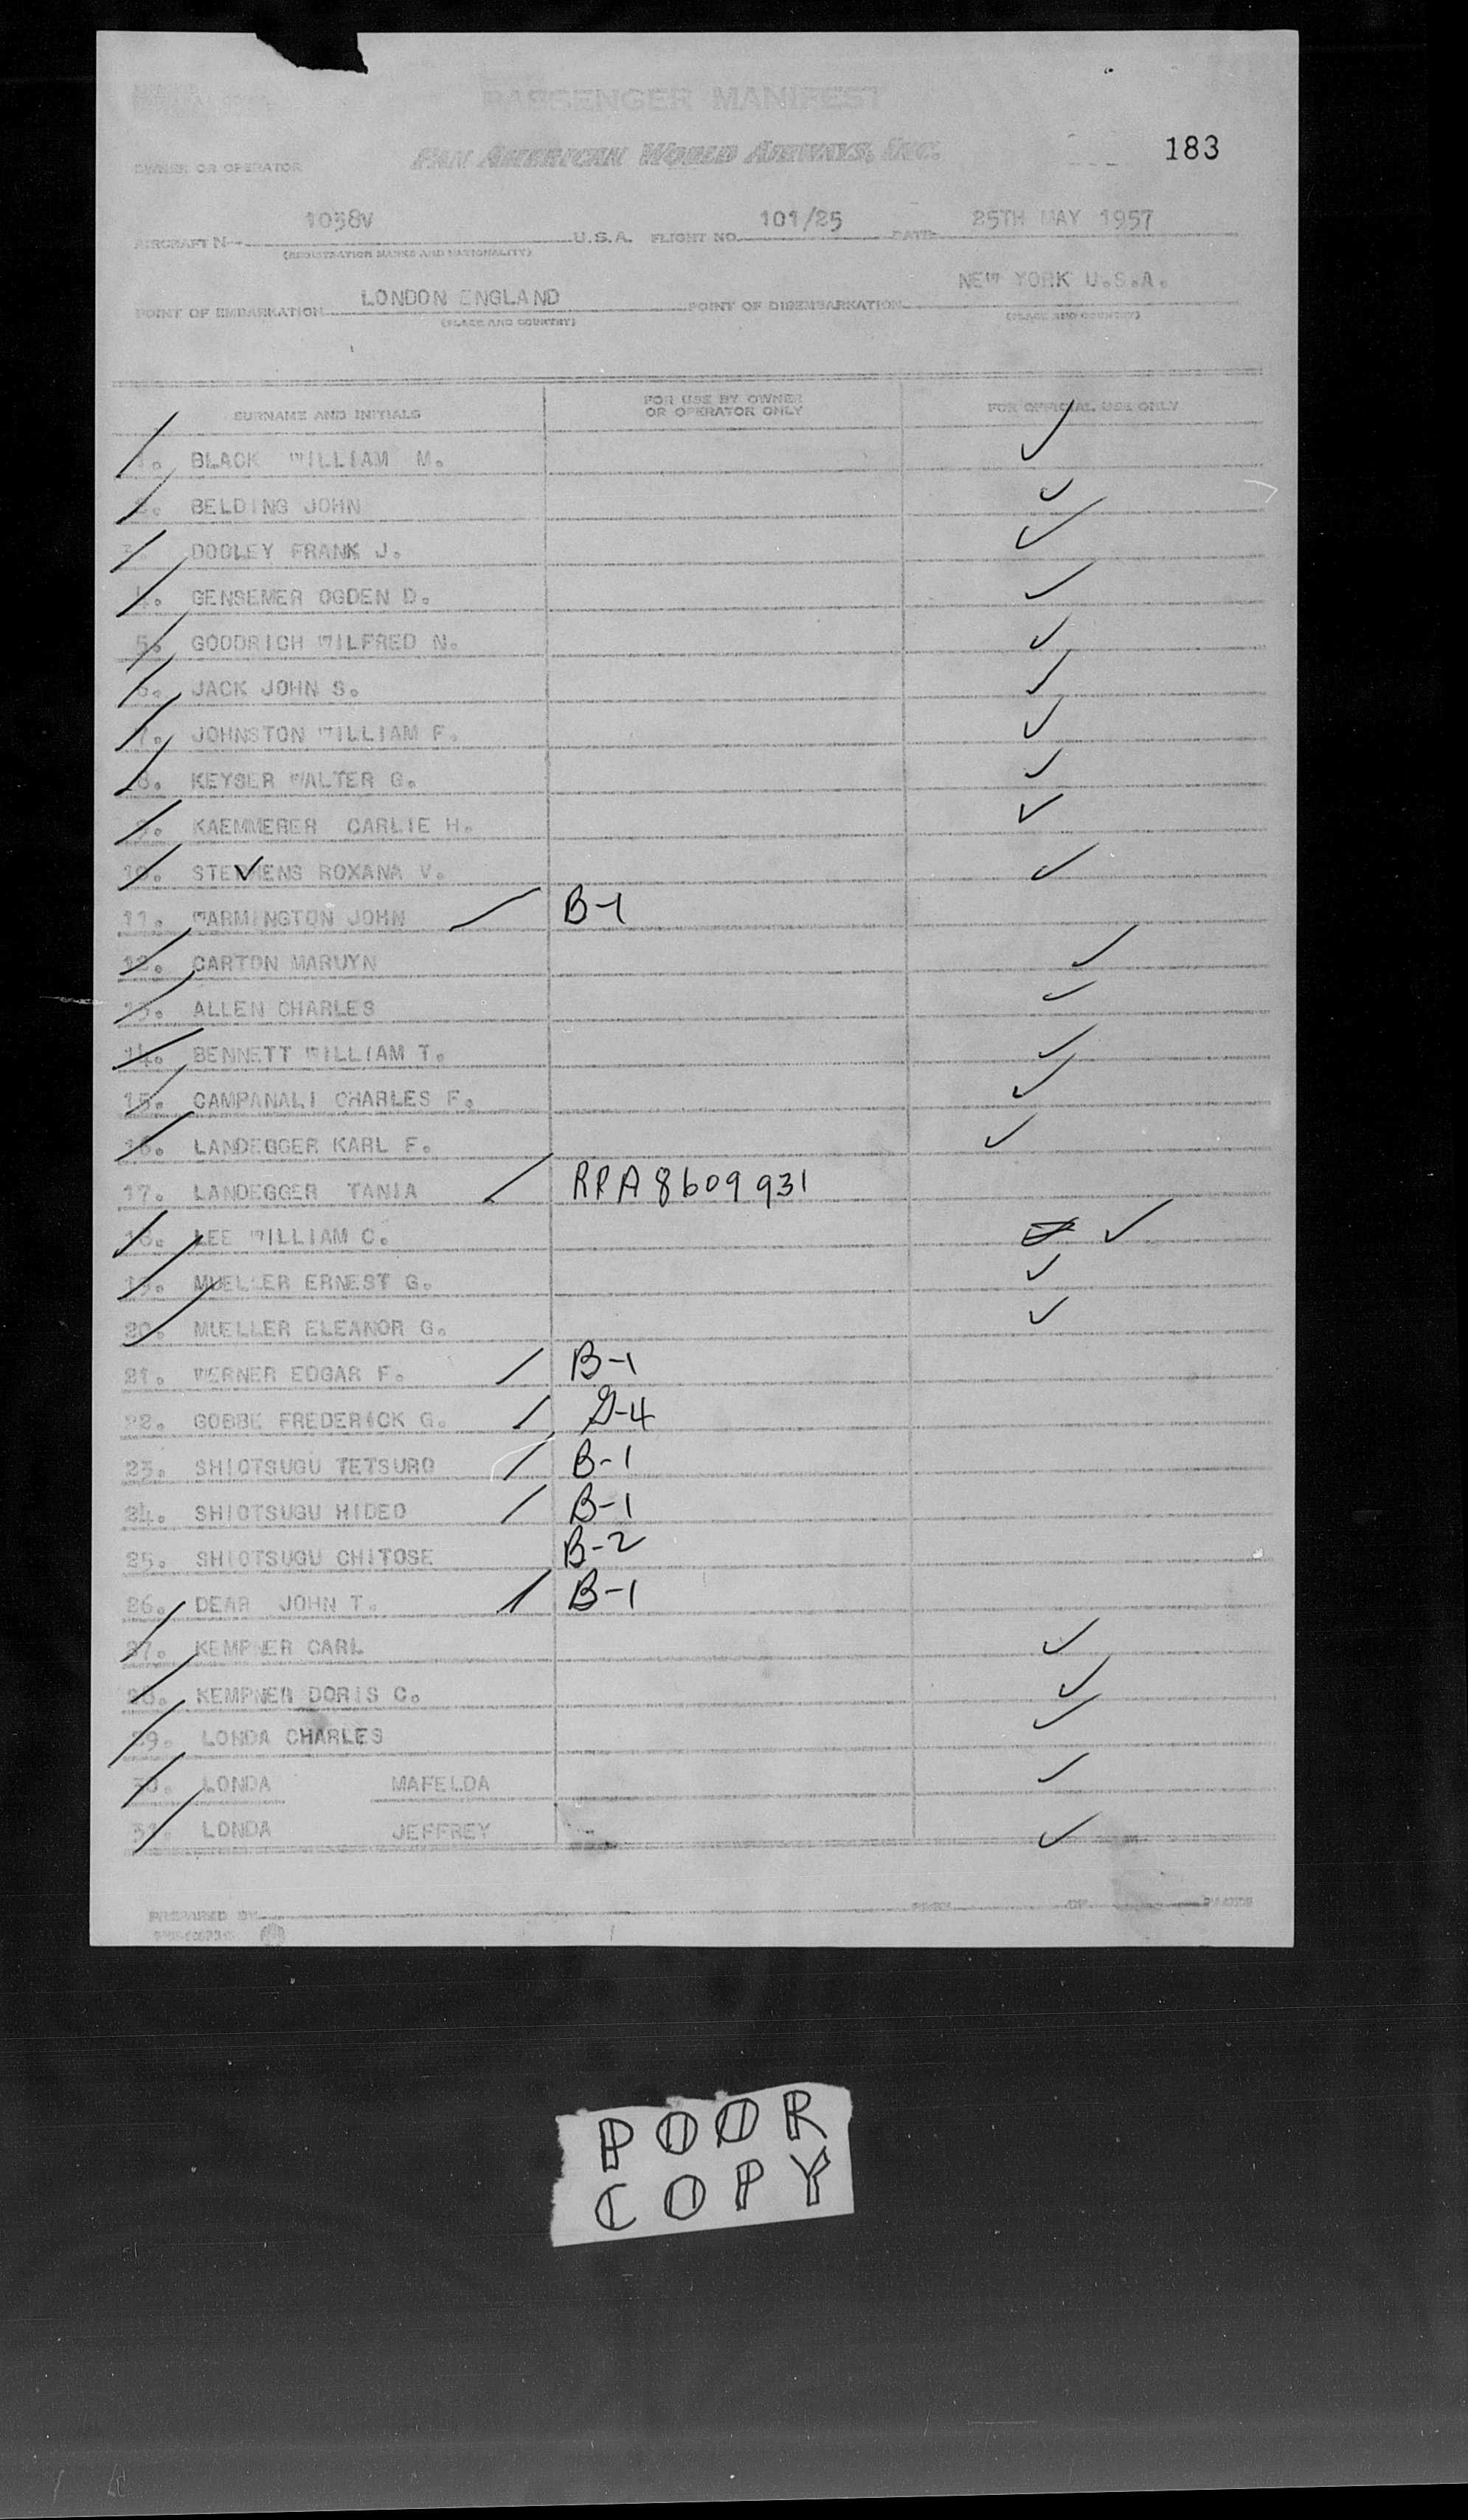 PASSENGER MANIFEST
183
OWNER OR OPERATOR PAN AMERICAN WORLD AIRWAYS, INC.
AIRCRAFT N 1038V U.S.A. FLIGHT NO. 101/25 DATE 25TH MAY 1957
(REGISTRATION MARKS AND NATIONALITY)
POINT OF EMBARKATION LONDON ENGLAND POINT OF DISEMBARKATION NEW YORK U.S.A.
(PLACE AND COUNTRY) (PLACE AND COUNTRY)
SURNAME AND INITIALS FOR USE BY OWNER OR OPERATOR ONLY FOR OFFICIAL USE ONLY
1. BLACK WILLIAM M. ✓
2. BELDING JOHN ✓
3. DOOLEY FRANK J. ✓
4. GENSEMER OGDEN D. ✓
5. GOODRICH WILFRED N. ✓
6. JACK JOHN S. ✓
7. JOHNSTON WILLIAM F. ✓
8. KEYSER WALTER G. ✓
9. KAEMMERER CARLIE H. ✓
10. STEPHENS ROXANA V. ✓
11. WARMINGTON JOHN B-1
12. CARTON MARUYN ✓
13. ALLEN CHARLES ✓
14. BENNETT WILLIAM T. ✓
15. CAMPANALI CHARLES F. ✓
16. LANDEGGER KARL F. ✓
17. LANDEGGER TANIA RPA8609931
18. LEE WILLIAM C. ✓
19. MUELLER ERNEST G. ✓
20. MUELLER ELEANOR G. ✓
21. WERNER EDGAR F. B-1
22. GOBBE FREDERICK G. G-4
23. SHIOTSUGU TETSURO B-1
24. SHIOTSUGU HIDEO B-1
25. SHIOTSUGU CHITOSE B-2
26. DEAR JOHN T. B-1
27. KEMPNER CARL ✓
28. KEMPNER DORIS C. ✓
29. LONDA CHARLES ✓
30. LONDA MAFELDA ✓
31. LONDA JEFFREY ✓
PREPARED BY OF
POOR
COPY